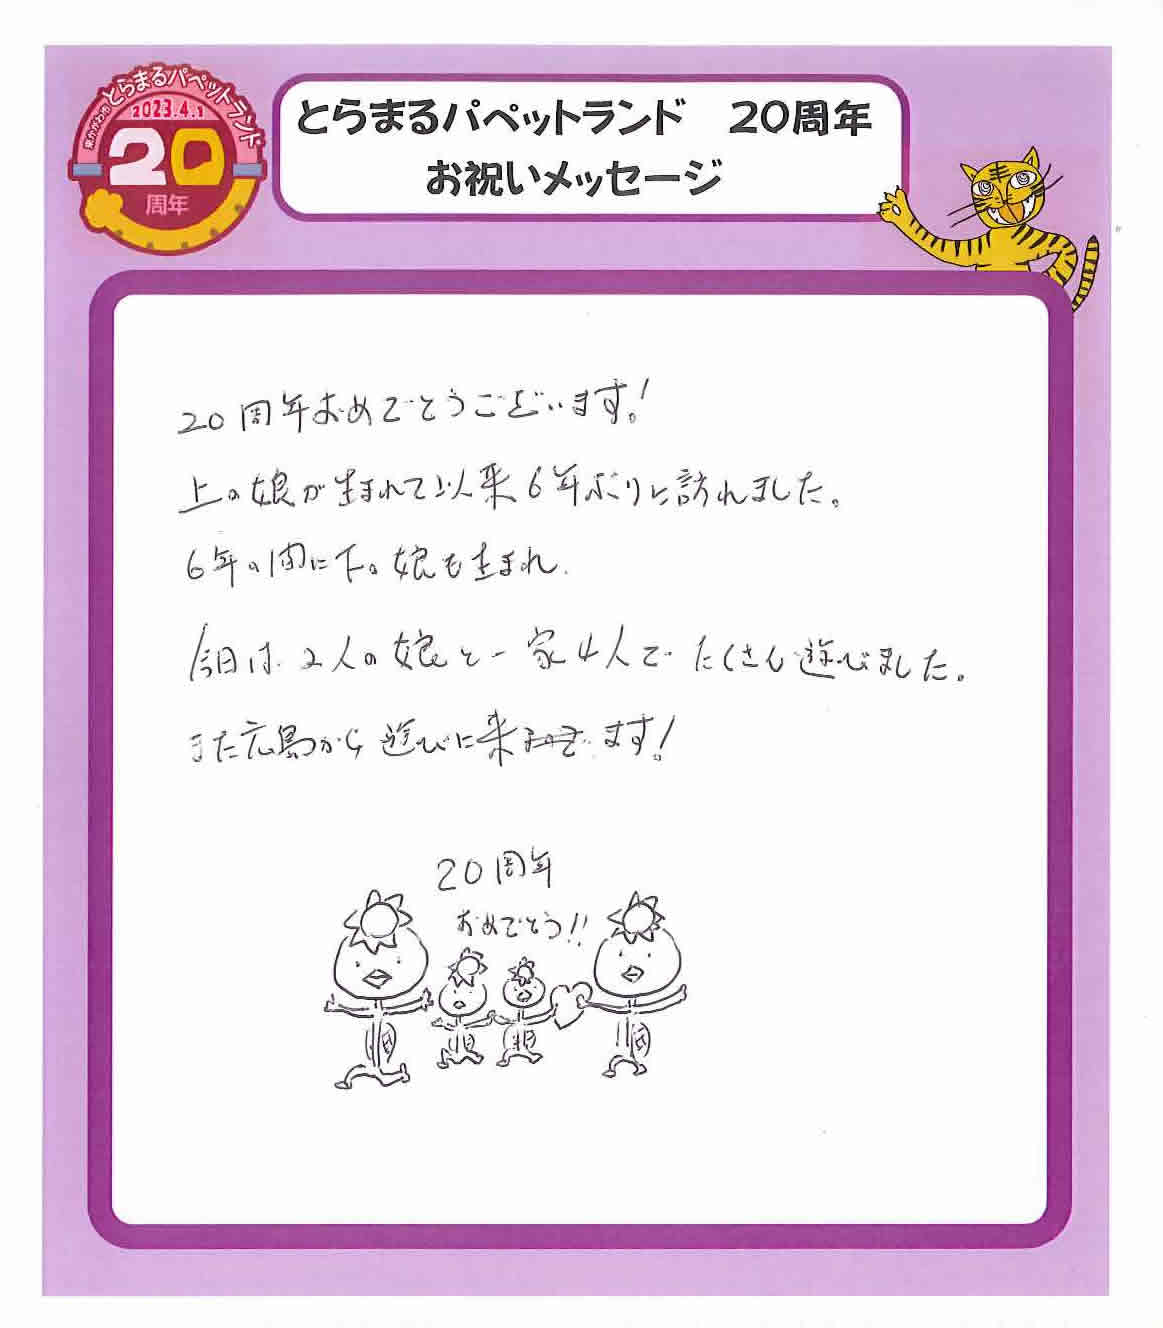 東かがわ市とらまるパペットランド
2023.4.1
20
周年
とらまるパペットランド 20周年
お祝いメッセージ
20周年おめでとうございます!
上の娘が生まれて以来6年ぶりに訪れました。
6年の間に下の娘も生まれ、
今日は、2人の娘と一家4人でたくさん遊びました。
また広島から遊びに来ます!
20周年
おめでとう!!